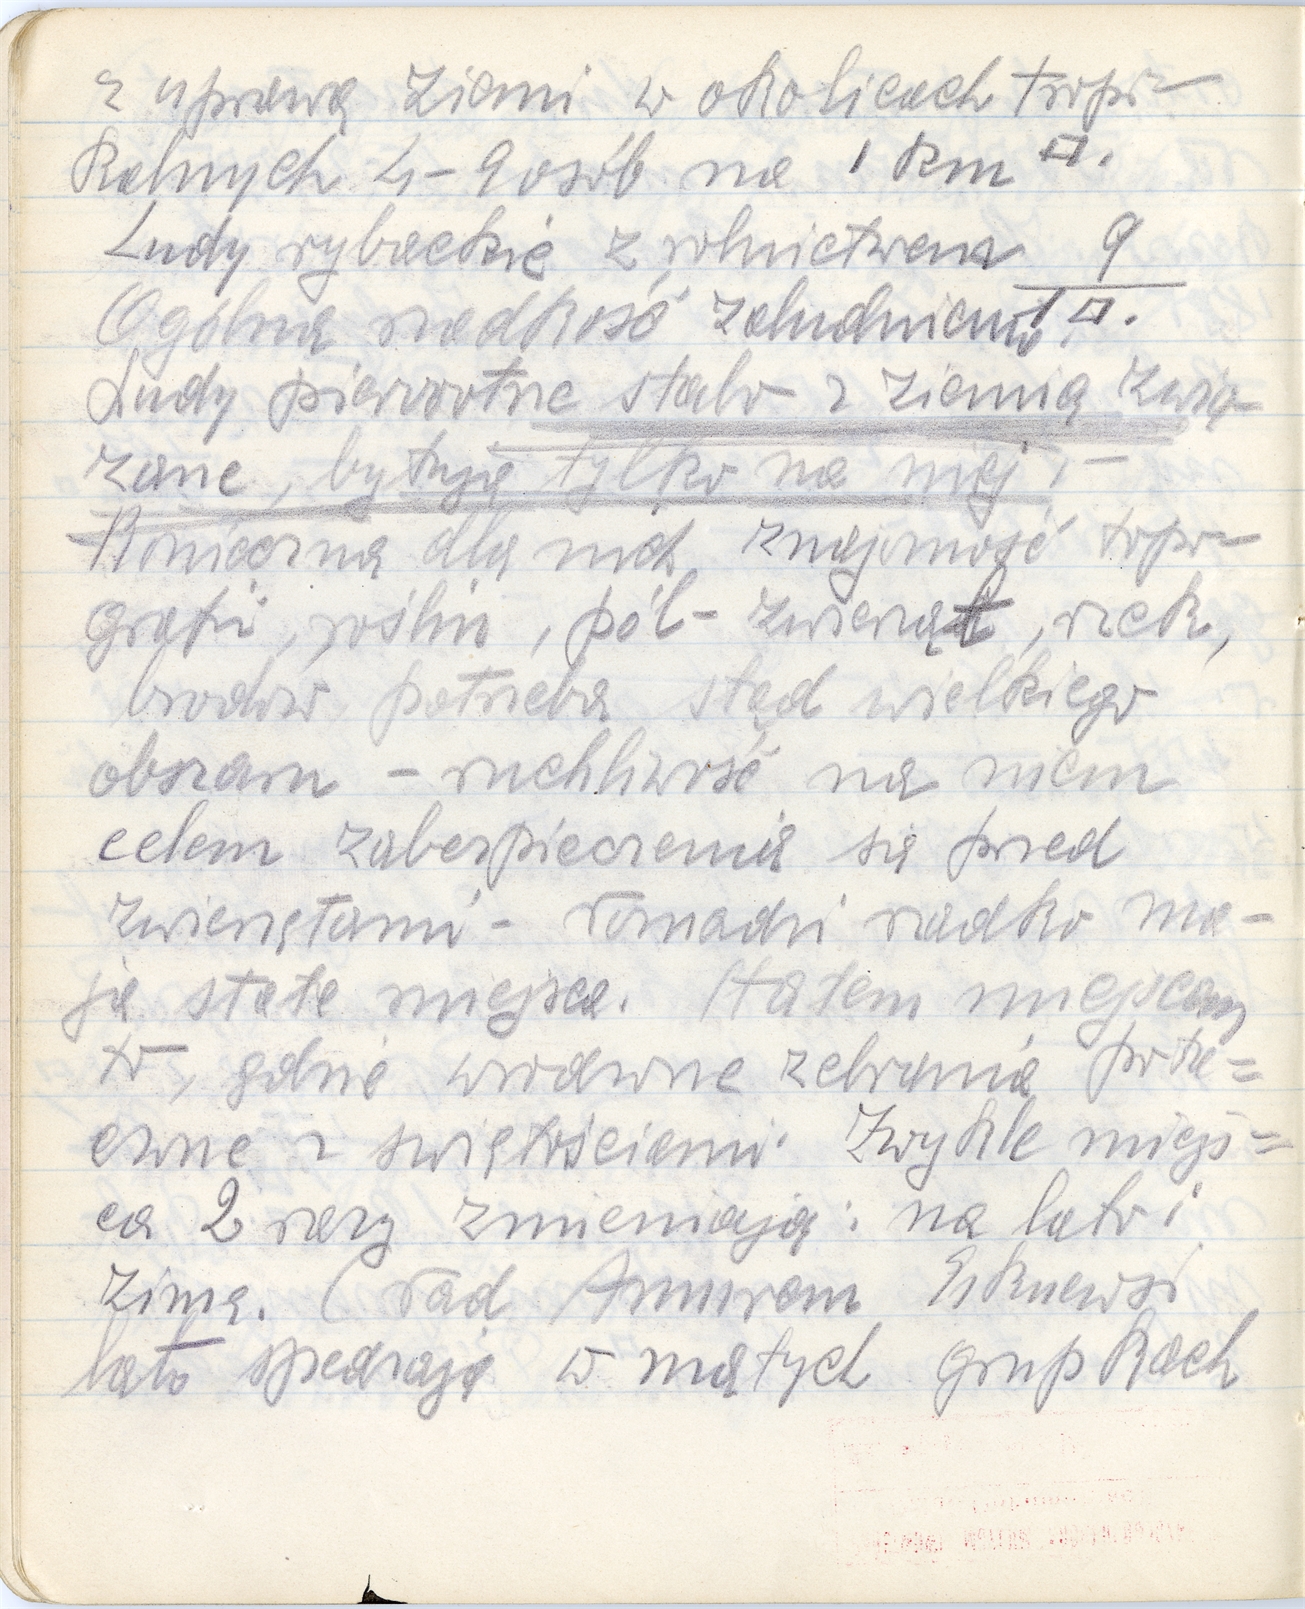 z uprawą ziemi w okolicach tropi-
kalnych 4-9 osób na 1 km □.
Ludy rybackie z rolnictwem 9
Ogólna rzadkość zaludnienia 1 □.
Ludy pierwotne stale z ziemią zwią-
zane, bytują tylko na niej i -
Konieczną dla nich znajomość topo-
grafii, roślin, pól - zwierząt, rzek,
brodów potrzeba stąd wielkiego
obszaru - ruchliwość na niem
celem zabezpieczenia się przed
zwierzętami - Nomadzi rzadko ma-
ją stałe miejsca. Stałem miejscem
to, gdzie urodowne zebrania połą-
czone z świętościami. Zwykle miejs=
ca 2 razy zmieniają: na lato i
zimę. (nad Amurem
lato spędzają w małych grupkach